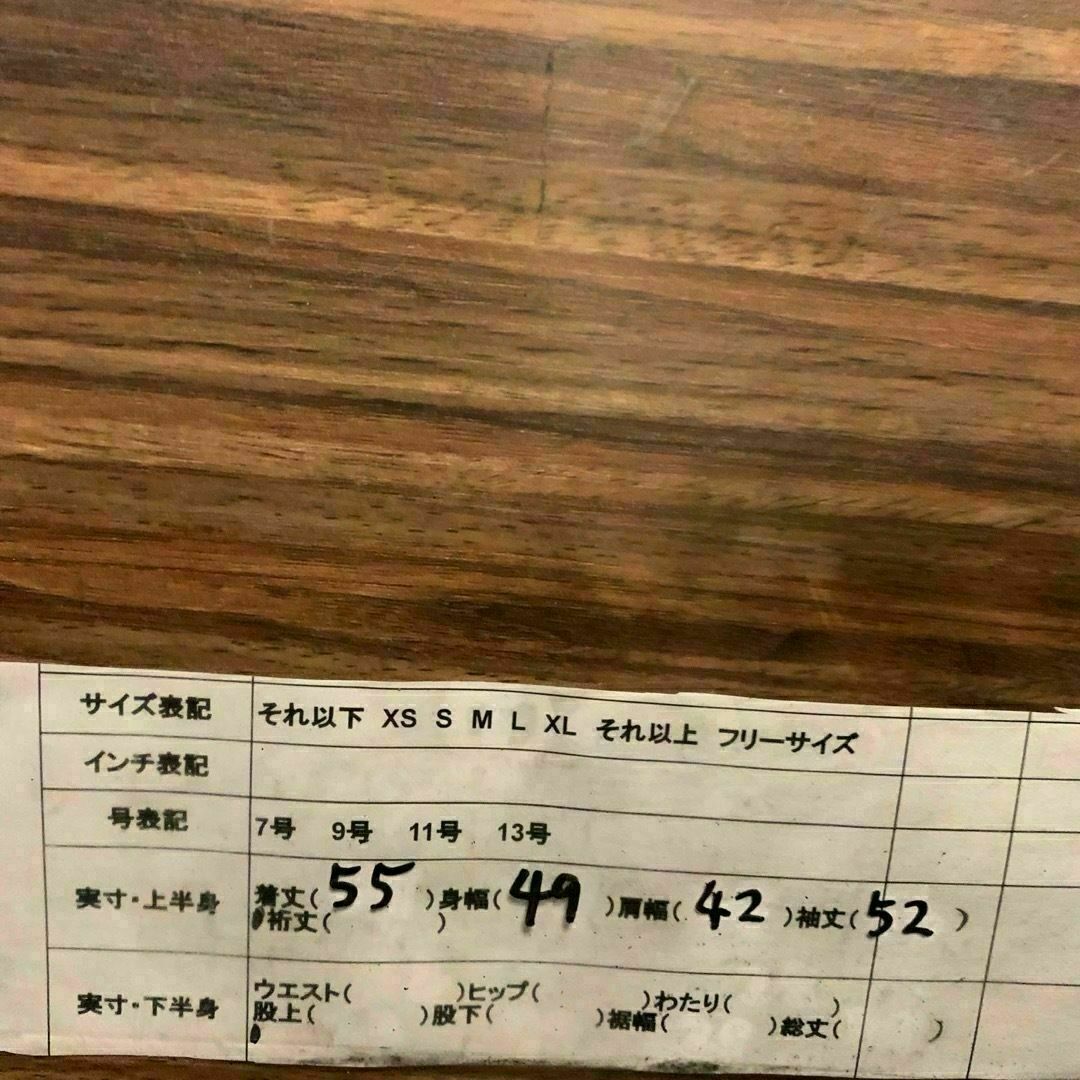 サイズ表記 それ以下 XS S M L XL それ以上 フリーサイズ
インチ表記
号表記 7号 9号 11号 13号
実寸・上半身 着丈( 55 )身幅( 49 )肩幅( 42 )袖丈( 52 )
裄丈( )
実寸・下半身 ウエスト( )ヒップ( )わたり( )
股上( )股下( )裾幅( )総丈( )